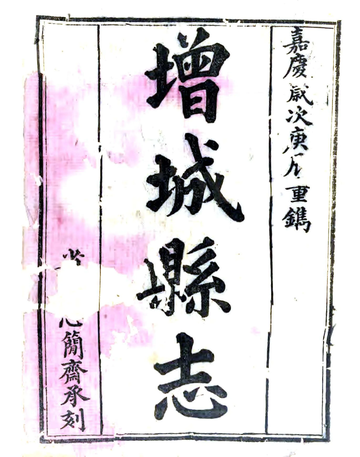 嘉慶歲次庚辰重鐫
增城縣志
簡齋承刻